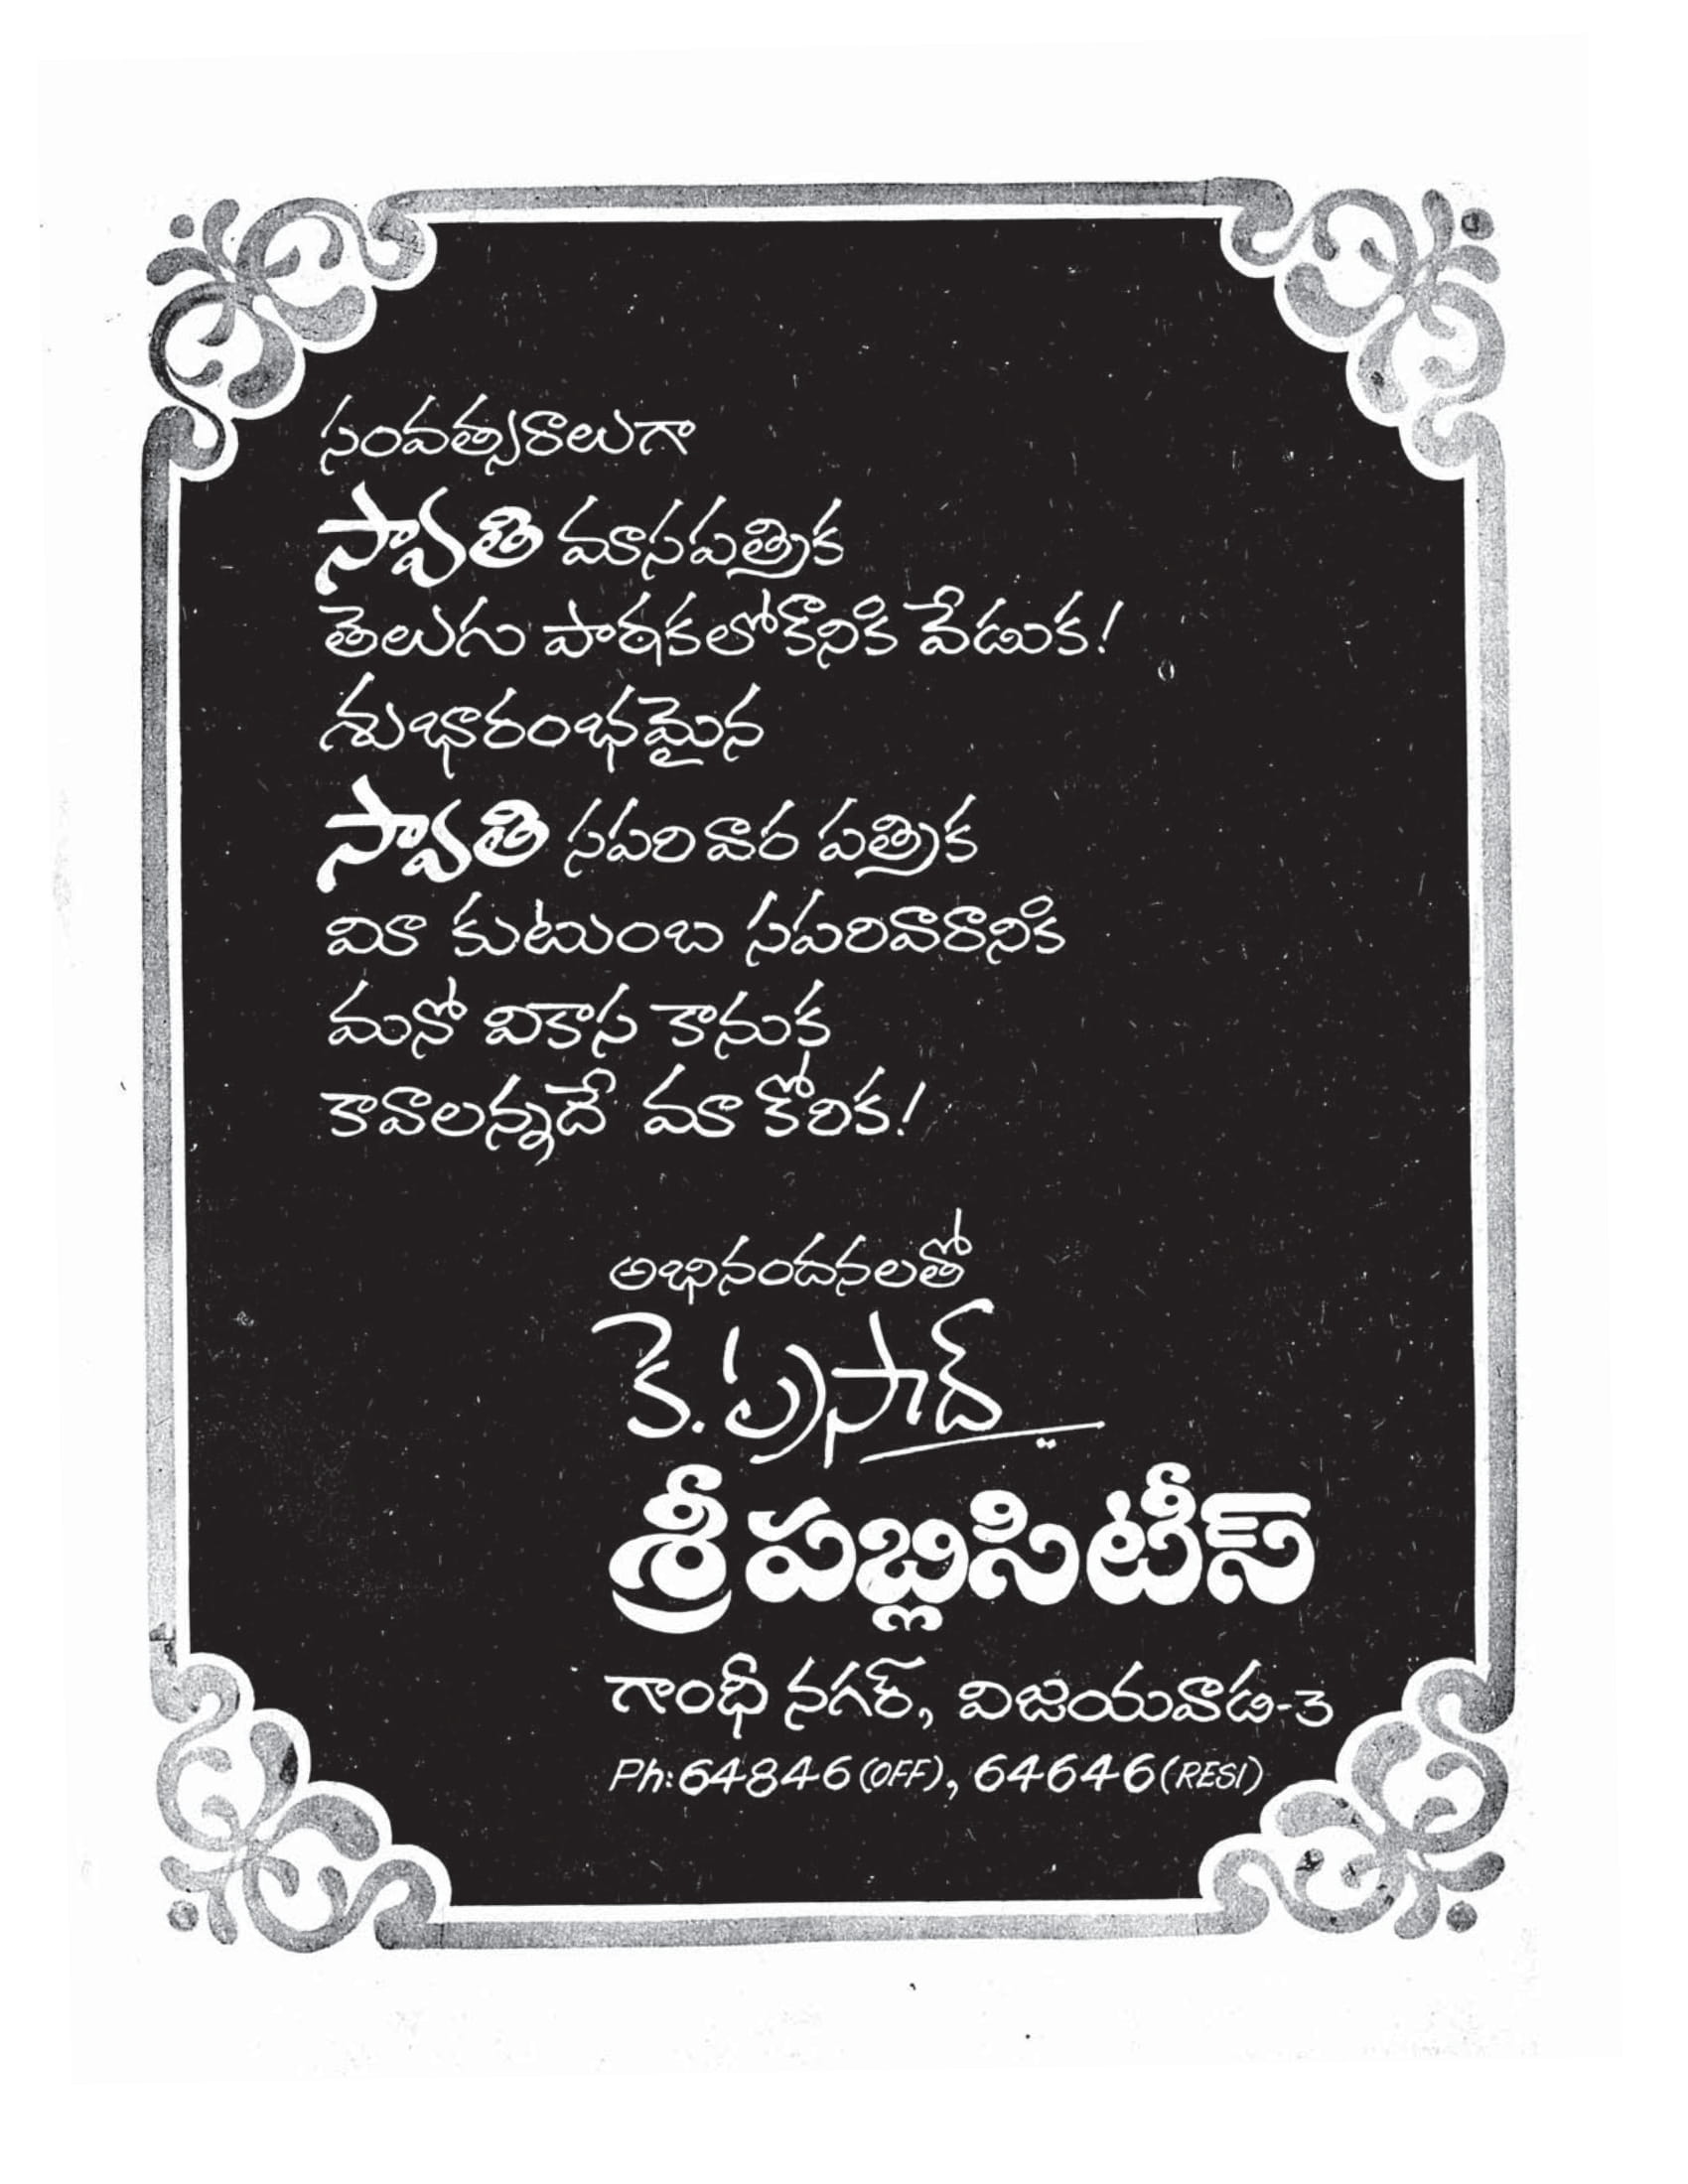 సంవత్సరాలుగా
స్వాతి మాసపత్రిక
తెలుగు పాఠకలోకానికి వేడుక!
శుభారంభమైన
స్వాతి సపరివార పత్రిక
మీ కుటుంబ సపరివారానికి
మనో వికాస కానుక
కావాలన్నదే మా కోరిక!
అభినందనలతో
కె. ప్రసాద్
శ్రీ పబ్లిసిటీస్
గాంధీ నగర్, విజయవాడ-3
Ph: 64846 (OFF), 64646 (RESI)